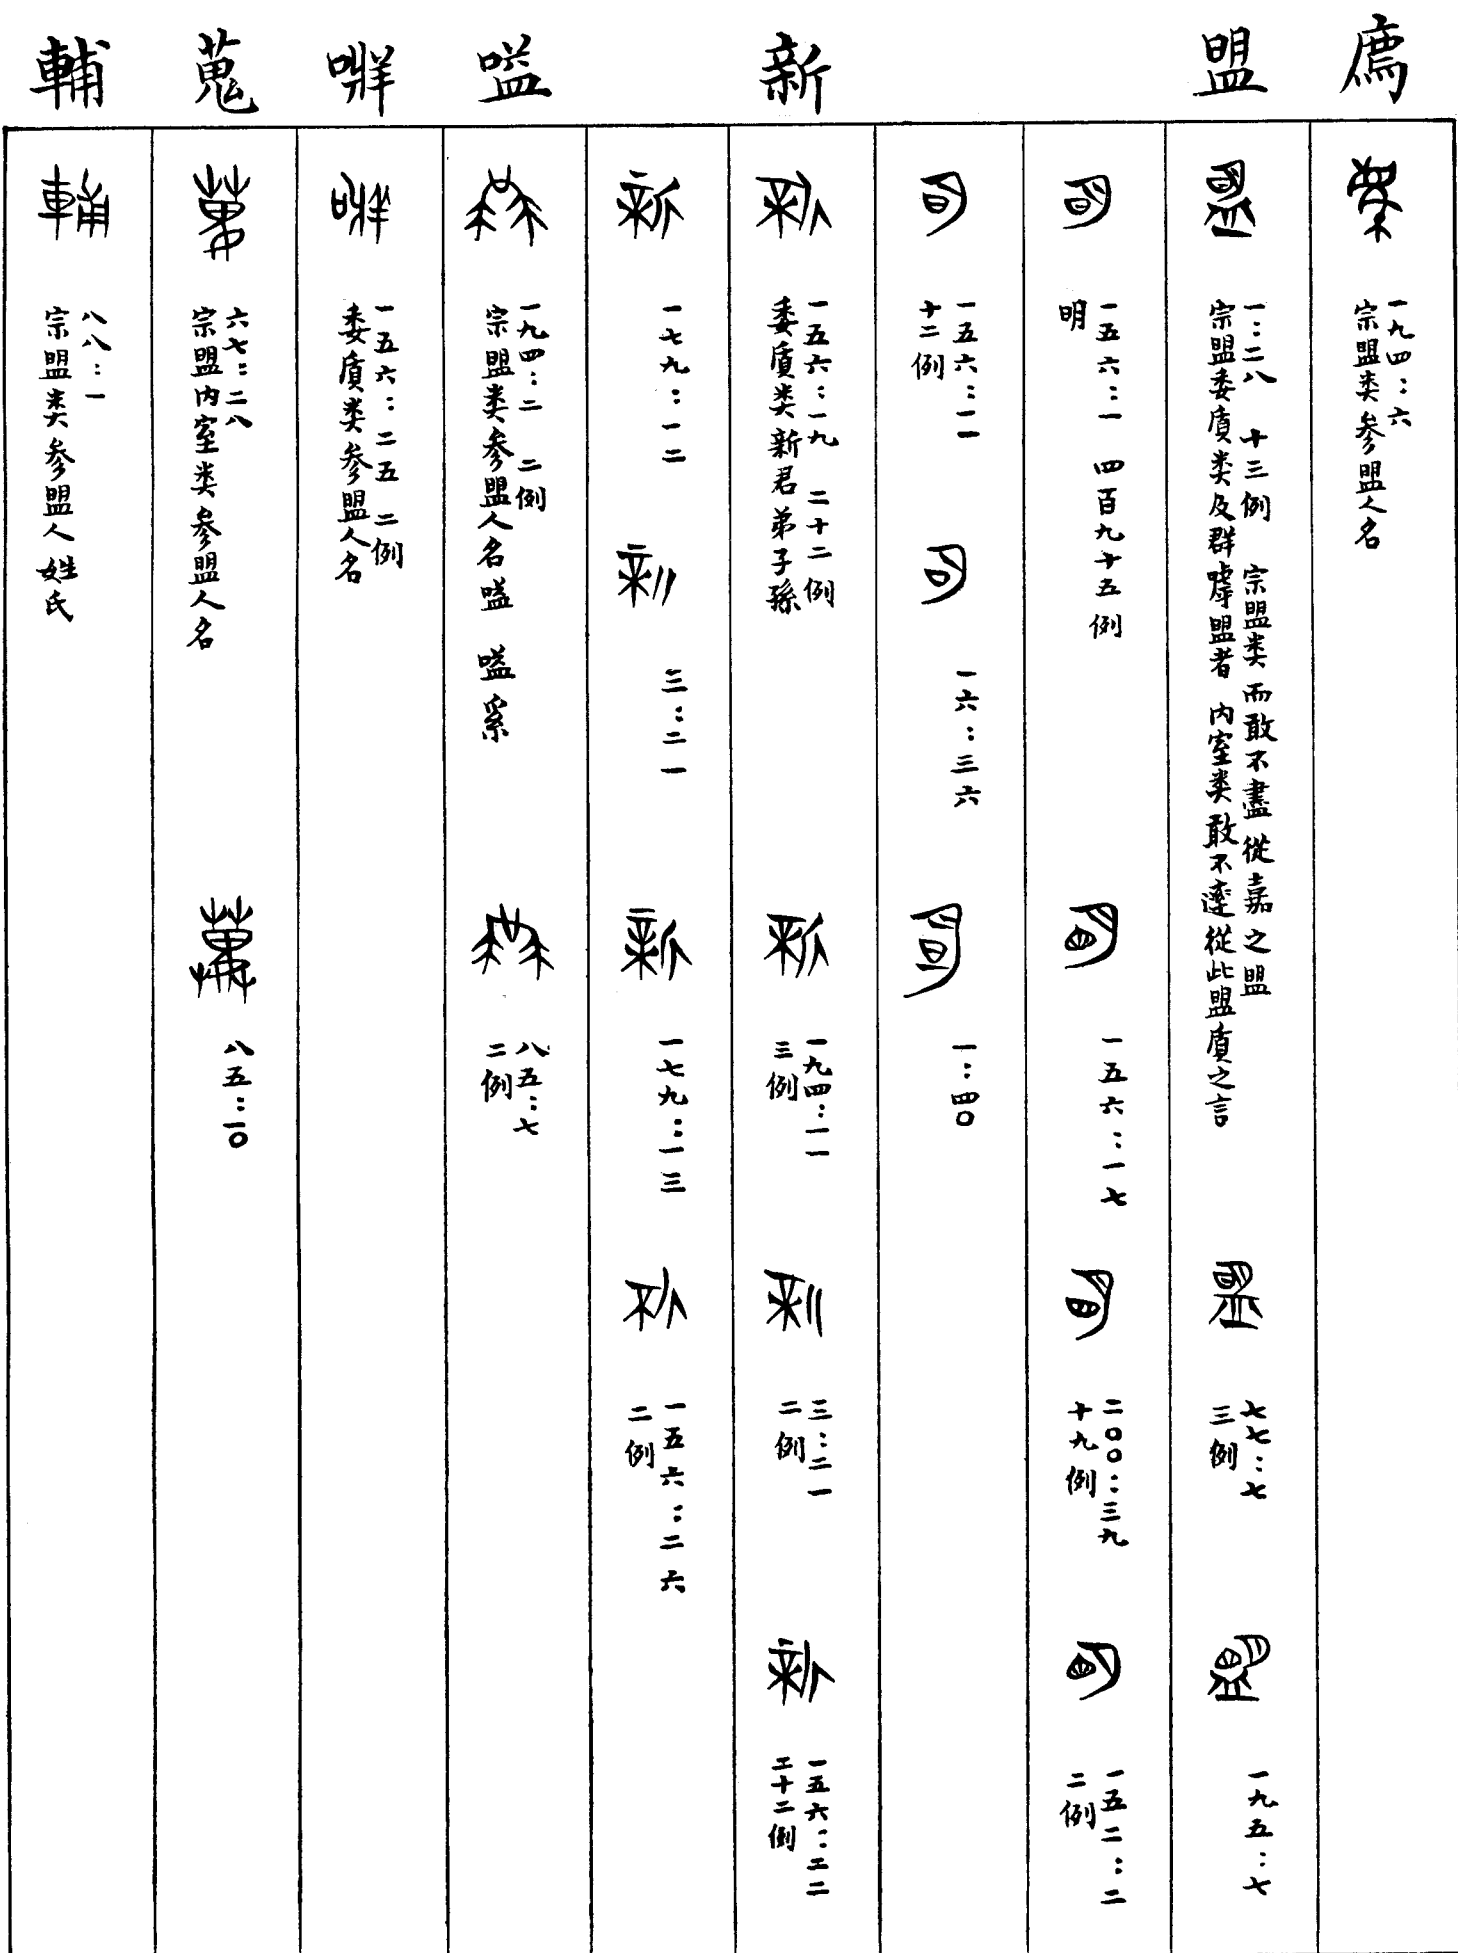 廌
一九四：六
宗盟类参盟人名
盟
一：二八　十三例　宗盟类而敢不盡從嘉之盟
宗盟委質类及群虖盟者　内室类敢不達從此盟質之言
七七：七
三例
一九五：七
一五六：一　四百九十五例
明
一五六：一七
二〇〇：三九
十九例
一五二：二
二例
一五六：一一
十二例
一六：三六
一：四〇
新
一五六：一九　二十二例
委質类新君弟子孫
一九四：一一
三例
三：二一
二例
一五六：二二
二十二例
一七九：一二
三：二一
一七九：一三
一五六：二六
二例
嗌
一九四：二　二例
宗盟类参盟人名嗌　嗌奚
八五：七
二例
一五六：二五　二例
委質类参盟人名
蒐
六七：二八
宗盟内室类参盟人名
八五：一〇
輔
八八：一
宗盟类参盟人姓氏